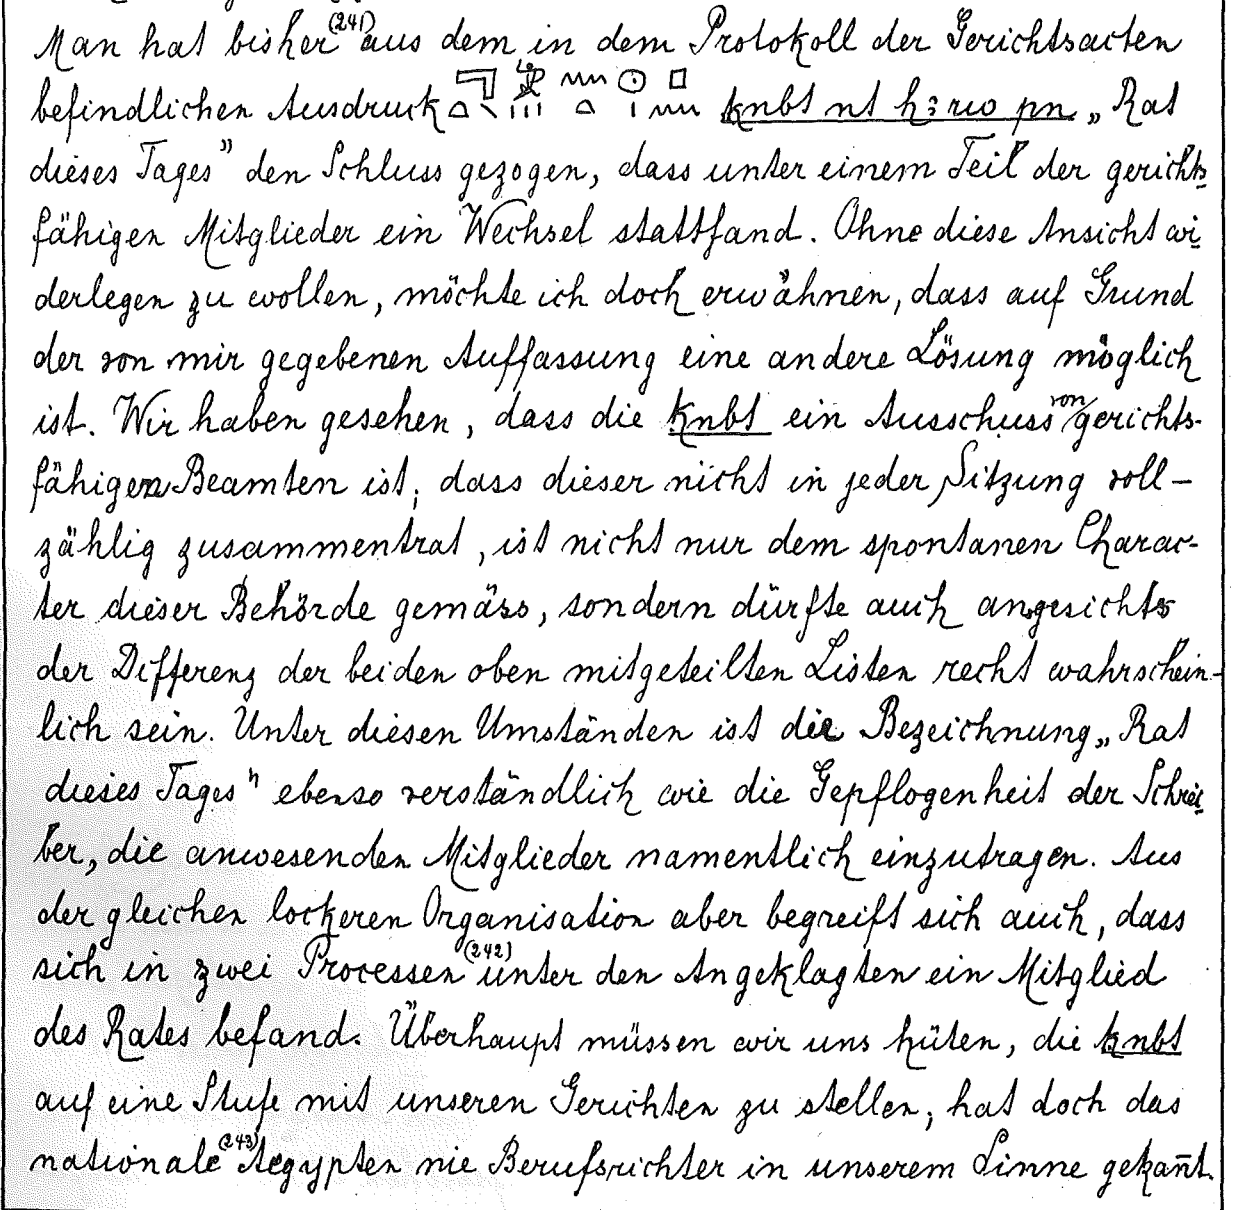 Man hat bisher (241) aus dem in dem Protokoll der Gerichtsacten
befindlichen Ausdruck knbt nt hꜣrw pn „Rat
dieses Tages" den Schluss gezogen, dass unter einem Teil der gerichts-
fähigen Mitglieder ein Wechsel stattfand. Ohne diese Ansicht wi-
derlegen zu wollen, möchte ich doch erwähnen, dass auf Grund
der von mir gegebenen Auffassung eine andere Lösung möglich
ist. Wir haben gesehen, dass die knbt ein Ausschuss von gerichts-
fähigen Beamten ist; dass dieser nicht in jeder Sitzung voll-
zählig zusammentrat, ist nicht nur dem spontanen Charac-
ter dieser Behörde gemäss, sondern dürfte auch angesichts
der Differenz der beiden oben mitgeteilten Listen recht wahrschein-
lich sein. Unter diesen Umständen ist die Bezeichnung „Rat
dieses Tages" ebenso verständlich wie die Gepflogenheit der Schrei-
ber, die anwesenden Mitglieder namentlich einzutragen. Aus
der gleichen lockeren Organisation aber begreift sich auch, dass
sich in zwei Processen (242) unter den Angeklagten ein Mitglied
des Rates befand. Überhaupt müssen wir uns hüten, die knbt
auf eine Stufe mit unseren Gerichten zu stellen; hat doch das
nationale (243) Aegypten nie Berufsrichter in unserem Sinne gekan̄t.